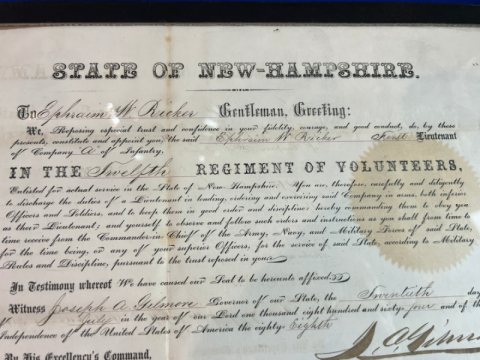 STATE OF NEW-HAMPSHIRE.
To Ephraim W Ricker Gentleman, Greeting:
We, Reposing especial trust and confidence in your fidelity, courage, and good conduct, do, by these
presents, constitute and appoint you, the said Ephraim W Ricker First Lieutenant
of Company A of Infantry,
IN THE Twelfth REGIMENT OF VOLUNTEERS,
Enlisted for actual service in the State of New Hampshire. You are, therefore, carefully and diligently
to discharge the duties of a Lieutenant in leading, ordering and exercising said Company in arms, both inferior
Officers and Soldiers, and to keep them in good order and discipline; hereby commanding them to obey you
as their Lieutenant; and yourself to observe and follow such orders and instructions as you shall from time to
time receive from the Commander-in-Chief of the Army, Navy, and Military Forces of said State,
for the time being, or any of your superior Officers, for the service of said State, according to Military
Rules and Discipline, pursuant to the trust reposed in you.
In Testimony whereof We have caused our Seal to be hereunto affixed.
Witness Joseph A. Gilmore Governor of our State, the Twentieth day
of July in the year of our Lord one thousand eight hundred and sixty four and of the
Independence of the United States of America the eighty-Eighth
By His Excellency's Command,